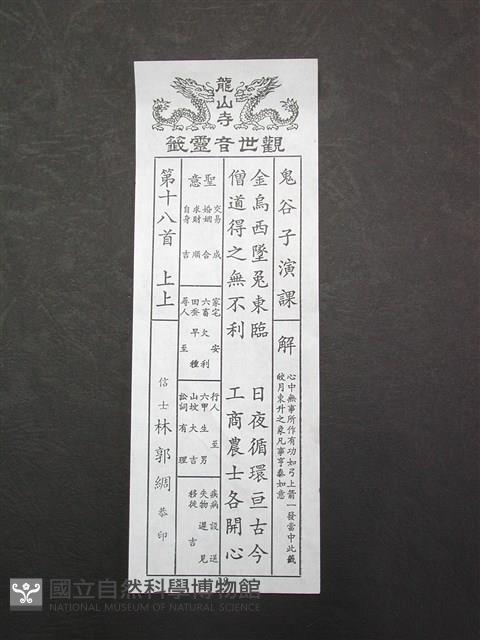 龍山寺
觀世音靈籤
鬼谷子演課
解
心中無事所作有功如弓上箭一發當中此籤
皎月東升之象凡事亨泰如意
金烏西墜兔東臨 日夜循環亘古今
僧道得之無不利 工商農士各開心
聖意
交易 成
婚姻 合
求財 順
自身 吉
家宅 安
六畜 利
田蚕 早種
尋人 至
行人 至
六甲 生男
山坟 大吉
訟詞 有理
疾病 設送
失物 遲見
移徙 吉
第十八首 上上
信士 林郭綢 恭印
國立自然科學博物館
NATIONAL MUSEUM OF NATURAL SCIENCE